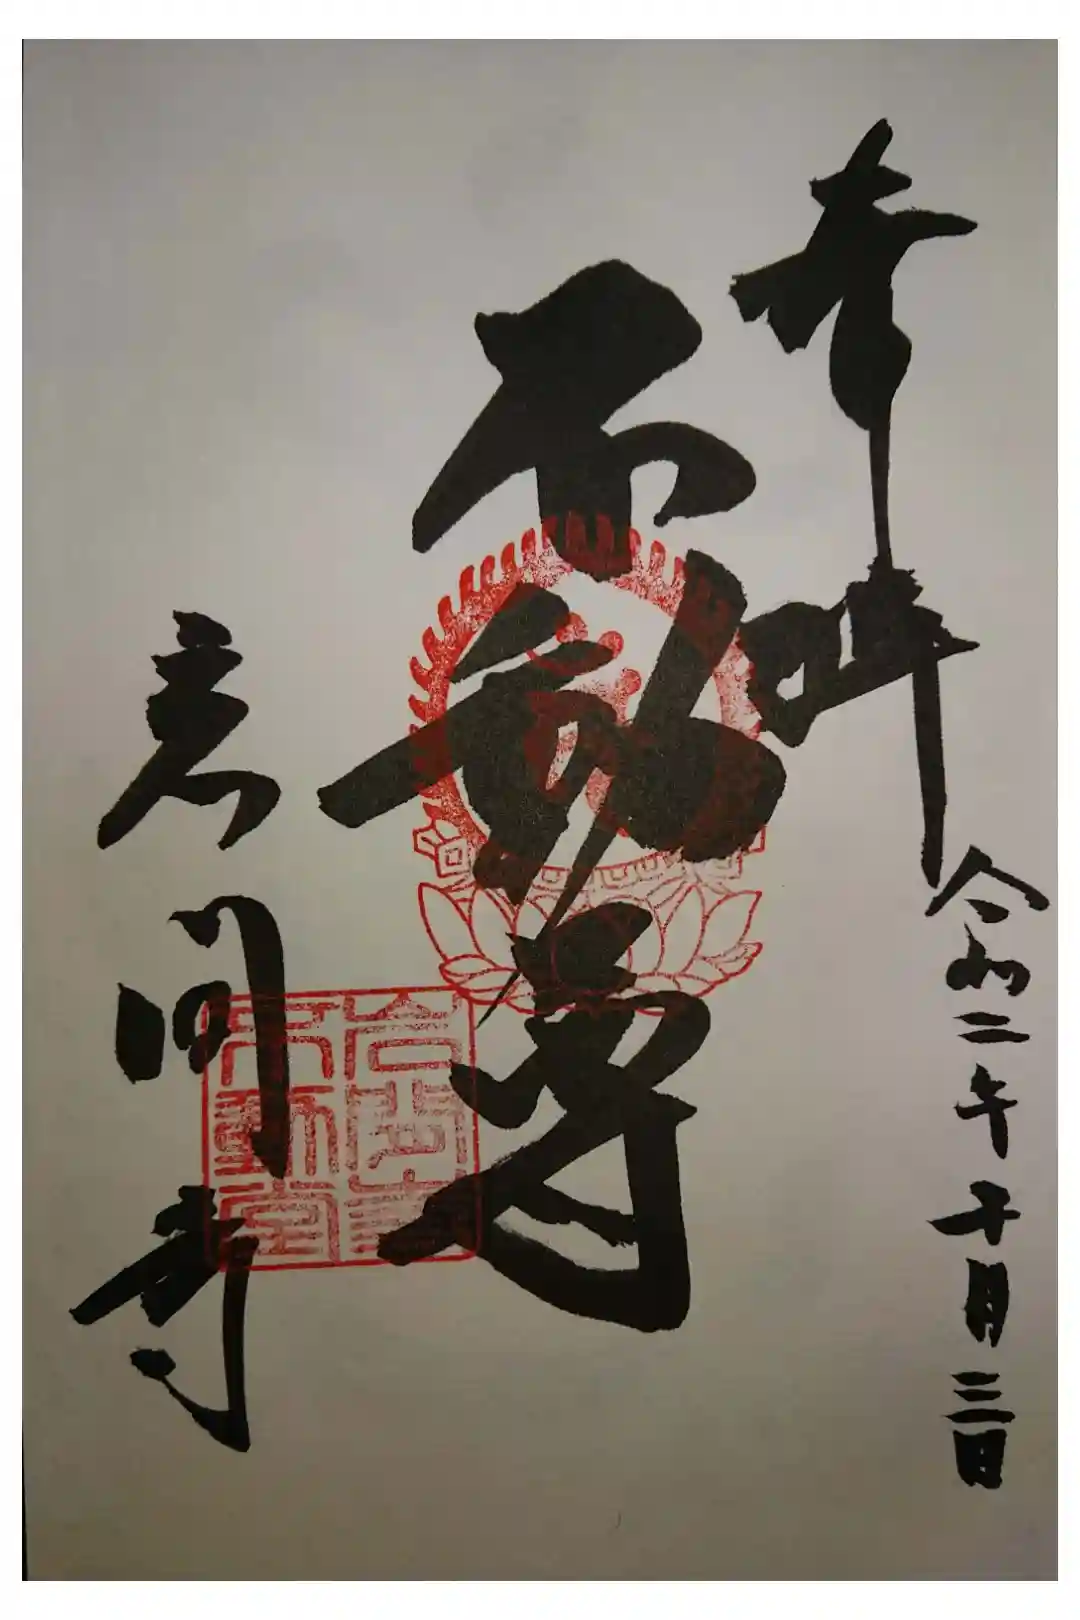 奉拝
令和二年十月三日
不動尊
寺